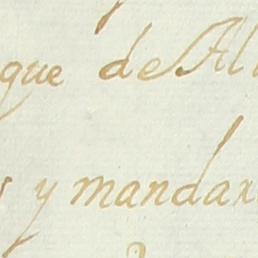 que de Al
y mandar